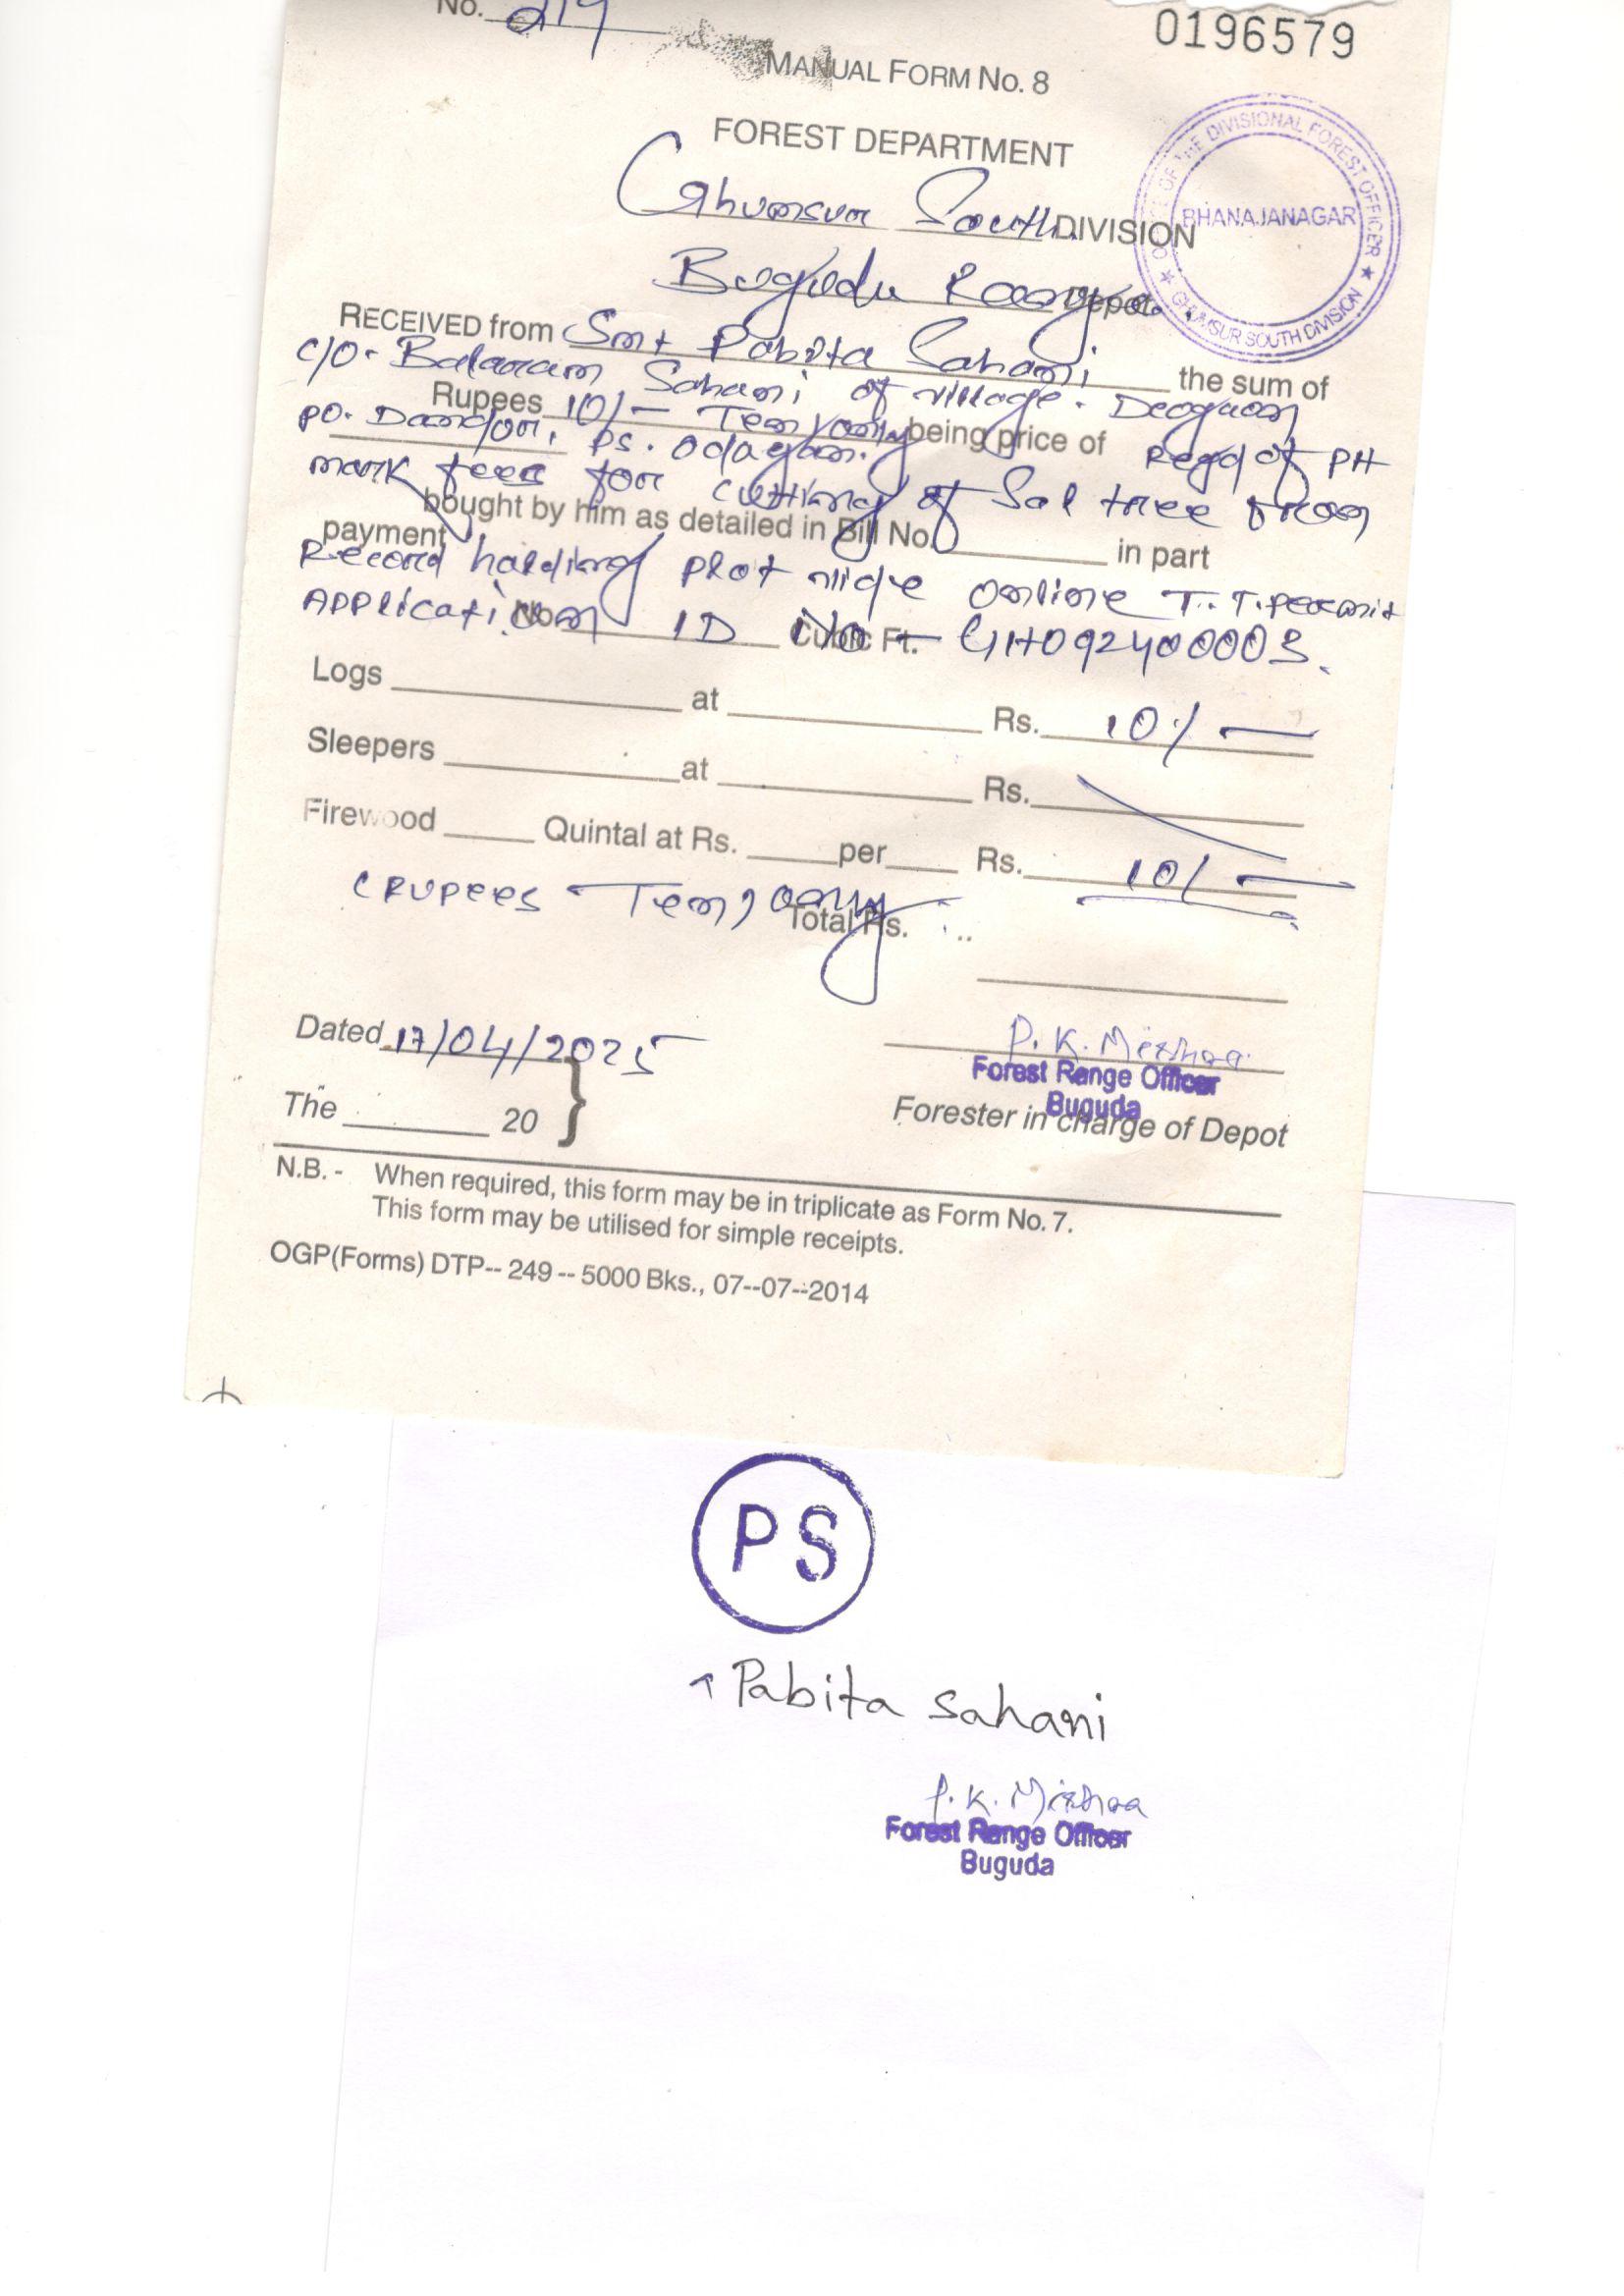 No. 219
0196579
MANUAL FORM No. 8
FOREST DEPARTMENT
Ghumsur South DIVISION
OFFICE OF THE DIVISIONAL FOREST OFFICER
BHANAJANAGAR
★ GHUMSUR SOUTH DIVISION ★
Buguda Range Depot.
RECEIVED from Smt Pabita Sahani the sum of
C/O. Balaram Sahani of village. Deogaon
Rupees 10/- Ten only being price of Regd of PH
PO. Ps. Odagaon.
mark fees for cutting of Sal tree from
bought by him as detailed in Bill No. in part
payment
Record holding plot vide online T.T. permit
Application ID No - GH092400003.
No. Cubic Ft.
Logs at Rs. 10/-
Sleepers at Rs.
Firewood Quintal at Rs. per Rs. 10/-
(RUPEES Ten) only
Total Rs. ..
Dated 17/04/2025
P. K. Mishra
Forest Range Officer
Buguda
The 20 }
Forester in charge of Depot
N.B. - When required, this form may be in triplicate as Form No. 7.
This form may be utilised for simple receipts.
OGP(Forms) DTP-- 249 -- 5000 Bks., 07--07--2014
PS
Pabita Sahani
P. K. Mishra
Forest Range Officer
Buguda